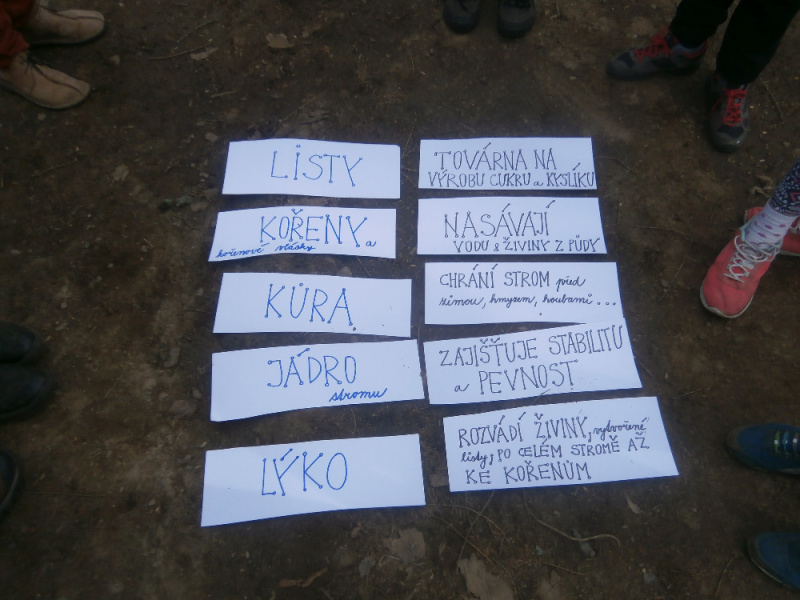 LISTY
TOVÁRNA NA
VÝROBU CUKRU a KYSLÍKU
KOŘENY a
kořenové vlásky
NASÁVAJÍ
VODU & ŽIVINY Z PŮDY
KŮRA
CHRÁNÍ STROM před
zimou, hmyzem, houbami...
JÁDRO
stromu
ZAJIŠŤUJE STABILITU
a PEVNOST
LÝKO
ROZVÁDÍ ŽIVINY, vytvořené
listy, PO CELÉM STROMĚ AŽ
KE KOŘENŮM